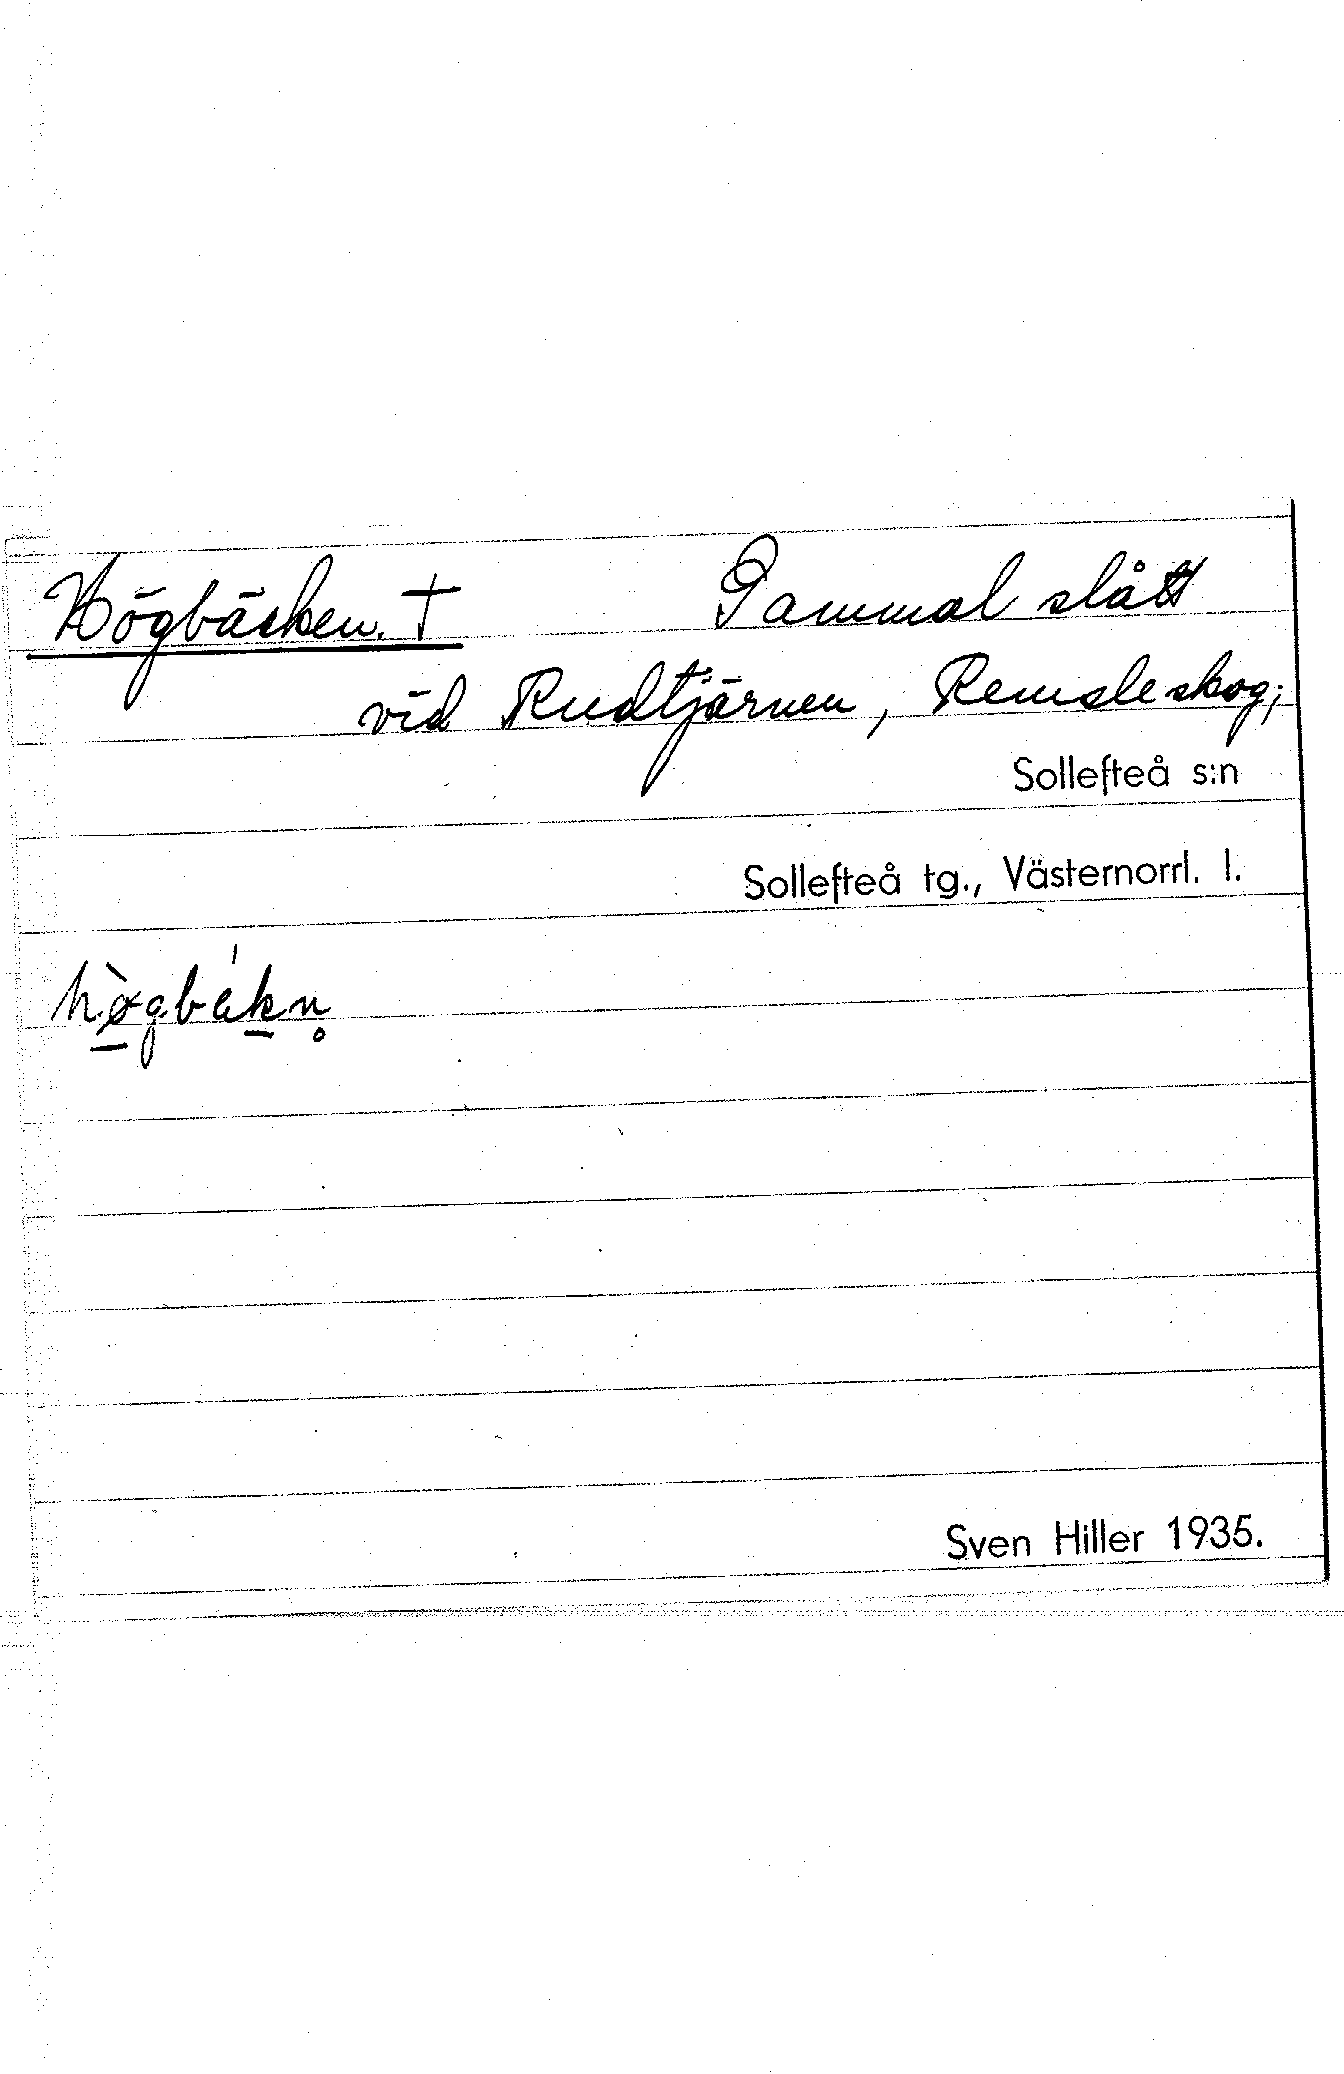 Högbäcken. † Gammal slått
vid Rudtjärnen, Remsle skog;
Sollefteå s:n
Sollefteå tg., Västernorrl. l.
hø̱̀gbák̠n̥
Sven Hiller 1935.